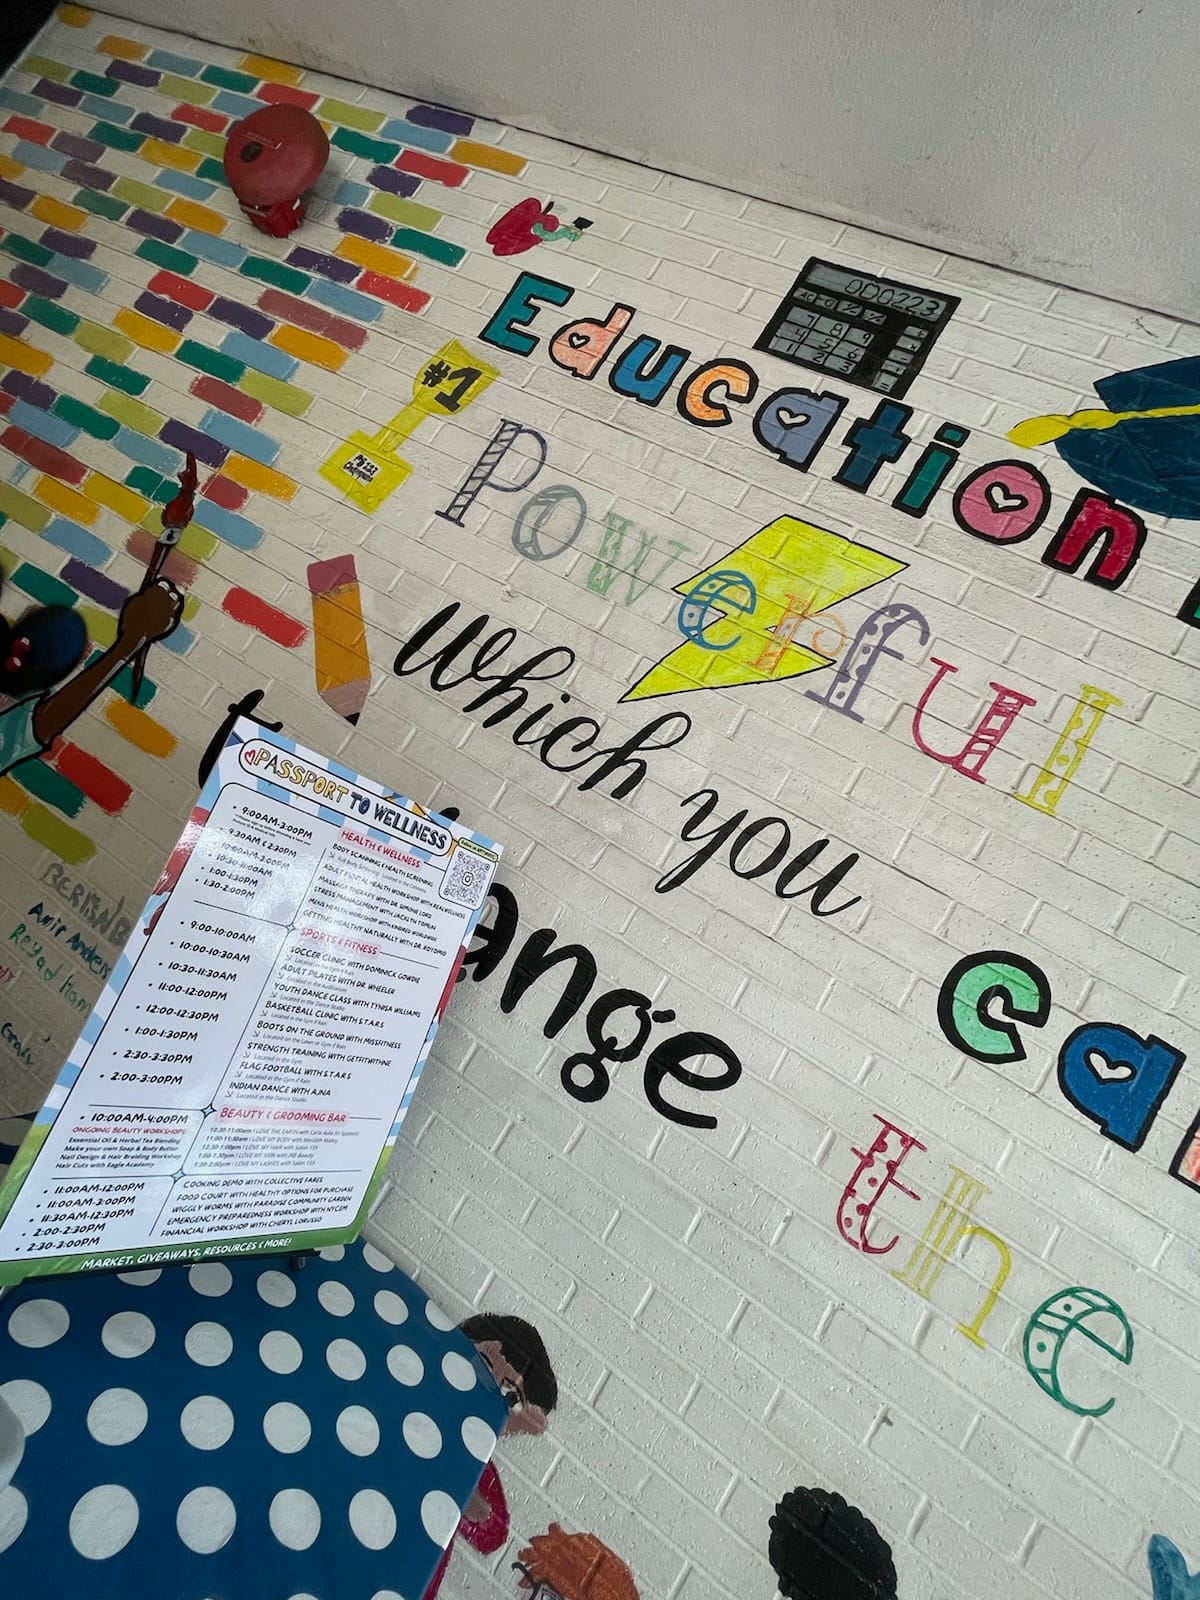 Education
000223
AC
7 8 9
4 5 6
1 2 3
#1
PS 223
Champions
Powerful
Which you
can
change
the
PASSPORT TO WELLNESS
9:00AM-3:00PM
9:30AM & 2:30PM
10:00AM-3:00PM
10:30-11:00AM
1:00-1:30PM
1:30-2:00PM
HEALTH & WELLNESS
BODY SCANNING & HEALTH SCREENING
ADULT MENTAL HEALTH WORKSHOP WITH REALWELLNESS
MASSAGE THERAPY WITH DR. SIMONE LORD
STRESS MANAGEMENT WITH JACKLYN TOMLIN
MENS HEALTH WORKSHOP WITH KINDRED WORLDWIDE
GETTING HEALTHY NATURALLY WITH DR. ROTOMO
SPORTS & FITNESS
9:00-10:00AM
SOCCER CLINIC WITH DOMINICK GOWDIE
Located in the Gym if Rain
10:00-10:30AM
ADULT PILATES WITH DR. WHEELER
Located in the Auditorium
10:30-11:30AM
YOUTH DANCE CLASS WITH TYNISA WILLIAMS
Located in the Dance Studio
11:00-12:00PM
BASKETBALL CLINIC WITH S.T.A.R.S
Located in the Gym if Rain
12:00-12:30PM
BOOTS ON THE GROUND WITH MISSFITNESS
Located on the Lawn or Gym if Rain
1:00-1:30PM
STRENGTH TRAINING WITH GETFITWITHNE
Located in the Gym
2:30-3:30PM
FLAG FOOTBALL WITH S.T.A.R.S
Located in the Gym if Rain
2:00-3:00PM
INDIAN DANCE WITH AJNA
Located in the Dance Studio
10:00AM-4:00PM
ONGOING BEAUTY WORKSHOPS
Essential Oil & Herbal Tea Blending
Make your own Soap & Body Butter
Nail Design & Hair Braiding Workshop
Hair Cuts with Eagle Academy
BEAUTY & GROOMING BAR
10:30-11:00am I LOVE THE EARTH with Carla Avila (In Spanish)
11:00-11:30am I LOVE MY BODY with Meridith Maloy
12:30-1:00pm I LOVE MY HAIR with Salon 159
1:00-1:30pm I LOVE MY SKIN with JRB Beauty
1:30-2:00pm I LOVE MY LASHES with Salon 159
11:00AM-12:00PM
11:00AM-3:00PM
11:30AM-12:30PM
2:00-2:30PM
2:30-3:00PM
COOKING DEMO WITH COLLECTIVE FARES
FOOD COURT WITH HEALTHY OPTIONS FOR PURCHASE
WIGGLY WORMS WITH PARADISE COMMUNITY GARDEN
EMERGENCY PREPAREDNESS WORKSHOP WITH NYCEM
FINANCIAL WORKSHOP WITH CHERYL LORUSSO
MARKET, GIVEAWAYS, RESOURCES & MORE!